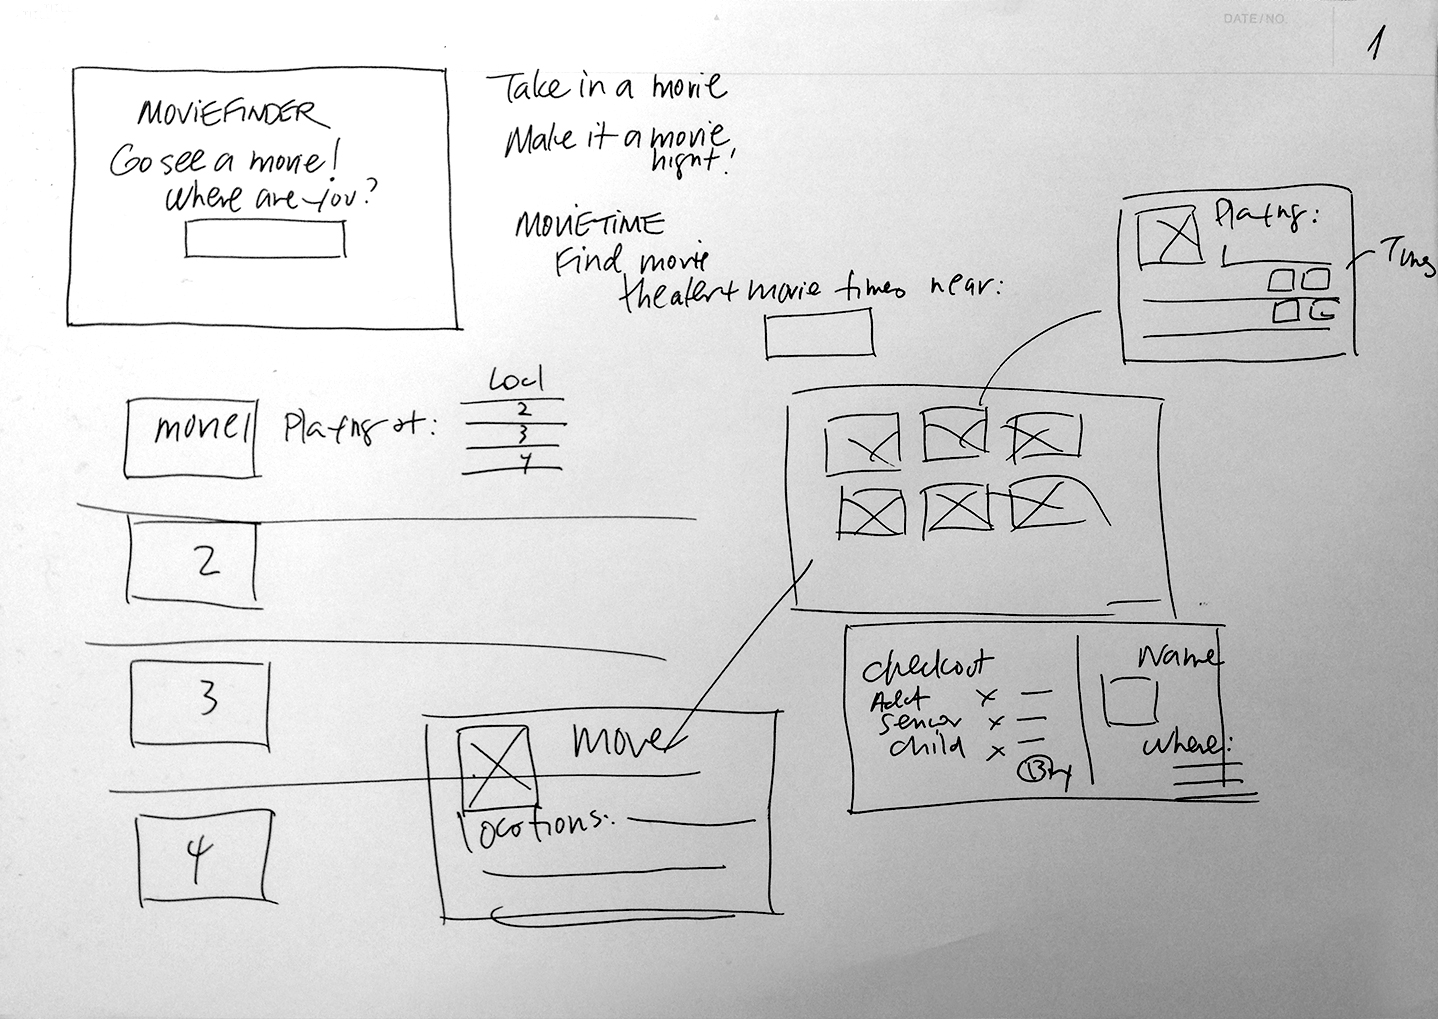 DATE/NO.
1
MOVIEFINDER
Go see a movie!
Where are you?
Take in a movie
Make it a movie
night!
MOVIETIME
Find movie
theater + movie times near:
Playing:
Times
movie 1
Playing at:
Loc 1
2
3
4
2
3
4
Movie
Locations:
Checkout
Adult x
Senior x
Child x
Buy
Name
Where: